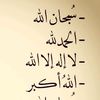 - سُبحان الله
- الحمدلله
- لا إله إلا الله
- اللهُ أكبر